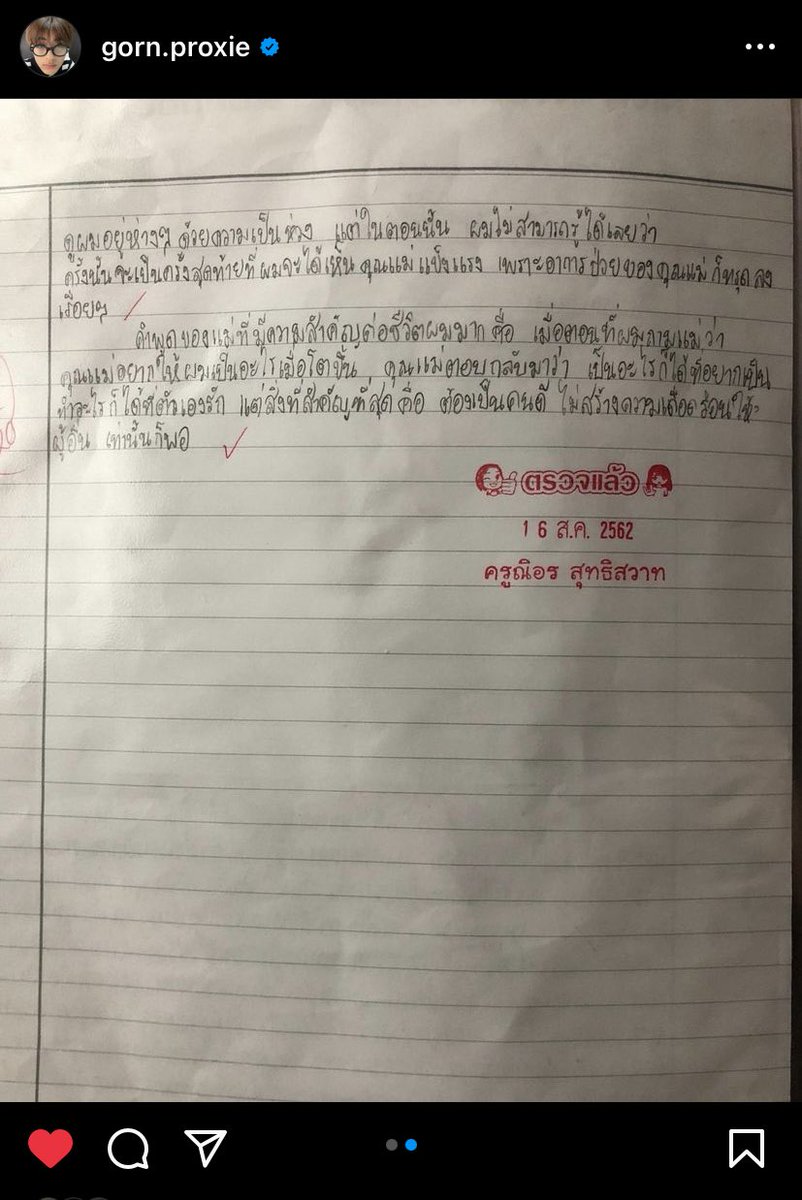 gorn.proxie
ดูผมอยู่ห่างๆ ด้วยความเป็นห่วง แต่ในตอนนั้น ผมไม่สามารถรู้ได้เลยว่า
ครั้งนั้นจะเป็นครั้งสุดท้ายที่ผมจะได้เห็นคุณแม่แข็งแรง เพราะอาการป่วยของคุณแม่ก็ทรุดลง
เรื่อยๆ
คำพูดของแม่ที่มีความสำคัญต่อชีวิตผมมากคือ เมื่อตอนที่ผมถามแม่ว่า
คุณแม่อยากให้ผมเป็นอะไรเมื่อโตขึ้น คุณแม่ตอบกลับมาว่า เป็นอะไรก็ได้ที่อยากเป็น
ทำอะไรก็ได้ที่ตัวเองรัก แต่สิ่งที่สำคัญที่สุดคือ ต้องเป็นคนดี ไม่สร้างความเดือดร้อนให้
ผู้อื่น เท่านั้นก็พอ
ตรวจแล้ว
16 ส.ค. 2562
ครูณิอร สุทธิสวาท